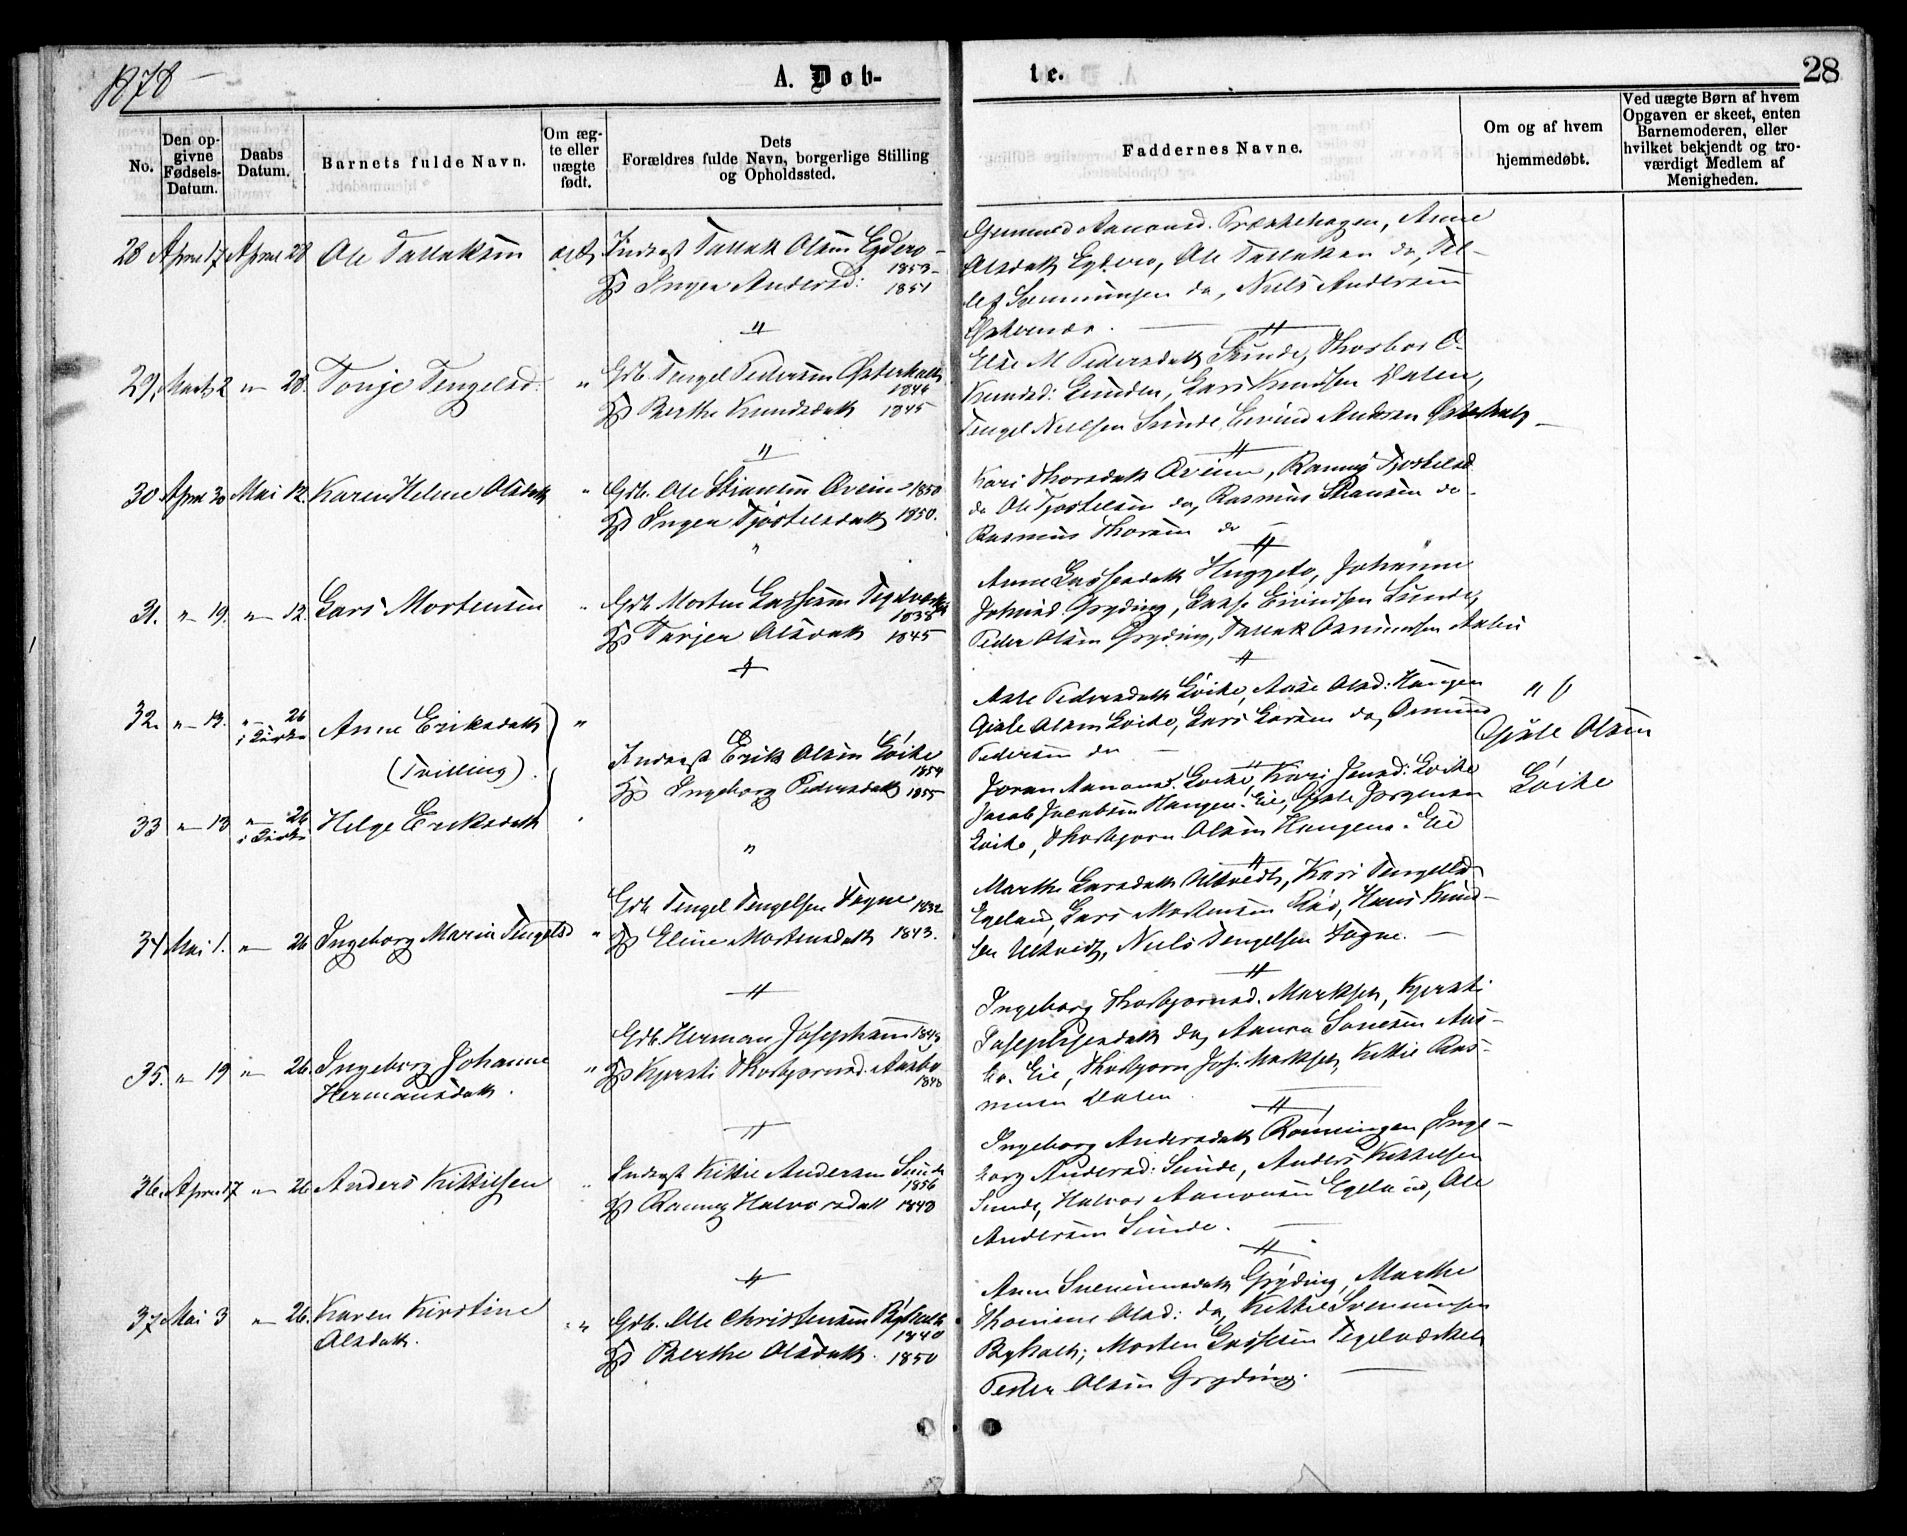 1878
A. Døb-
te.
28
No.
Den op-
givne
Fødsels-
Datum.
Daabs
Datum.
Barnets fulde Navn.
Om æg-
te eller
uægte
født.
Dets
Forældres fulde Navn, borgerlige Stilling
og Opholdssted.
Faddernes Navne.
Om og af hvem
hjemmedøbt.
Ved uægte Børn af hvem
Opgaven er skeet, enten
Barnemoderen, eller
hvilket bekjendt og tro-
værdigt Medlem af
Menigheden.
28 April 17 April 28 Ole Tallaksen ægte Inderst Tallak Olsen Eydero
1853
Inger Andersd: 1851
Gunnuld Aanonsd. Træktehagen, Anne
Olsdatt Eydero, Ole Tallaksen do, Del-
lef Sæmunsen do, Niels Andersen
29, Marts 2 " 28. Tonje Tengelsd. " Gdb. Tengel Pedersen Østerholt
1846
Berthe Knudsdatt 1845
Else M Pedersdatt Sunde, Thorbor O.
Knudsd: Lunden, Lars Knudsen Dalen,
Tengel Nielsen Sunde Eivind Andersen Østerholt
30 April 30 Mai 12. Karen Helene Olsdatt " Gdb. Ole Stiansen Øveine 1850
Inger Tjøstelsdatt 1850.
Kari Thorsdatt Øveine, Ranny Tjøstelsd
do Ole Tjøstelsen do, Rasmus Stiansen do
Rasmus Thorsen do
31. " 19. " 12. Lars Mortensen " Gdb Morten Lassesen Teglværket
1838
Terjer Olsdatt 1845
Anne Lassesdatt Huggeto, Johanne
Johnsd. Gryding, Lasse Eivindsen Lunde,
Peder Olsen Gryding, Tallak Osmundsen Aabu
32. " 13. " 26 Anne Eriksdatt "
i Kirke
(Tvilling).
Inderst Erik Olsen Løite
1854
Ingeborg Pedersdatt 1855
Aase Pedersdatt Løite, Anne Olsd: Haugen
Gjele Olsen Løite, Lars Larsen do, Osmund
Pedersen do
Gjele Olsen
Løite
33 " 13 " 26 Helge Eriksdatt
i Kirke
Joran Aanonsd. Løite, Kari Jensd: Løite
Jacob Jacobsen Haugen. Eie, Gjele Jørgensen
Løite, Thorbjørn Olsen Haugen. Eie
34 Mai 1. " 26 Ingeborg Maria Tengelsd " Gdb Tengel Tengelsen Fogne 1832
Eline Mortensdatt 1843.
Marthe Larsdatt Ulltvedt, Kari Tengelsd
Egeland, Lars Mortensen Röd, Hans Knud-
sen Ulltvedt, Niels Tengelsen Fogne.
35. " 19 " 26. Ingeborg Johanne " Gdb. Herman Josephsen 1843
Hermansdatt. Kjersti Thorbjørnsd. Aasbo
1843
Ingeborg Thorbjørnsd. Markset, Kjersti
Josephsensdatt do, Aanon Sørensen Aas-
bo. Eie, Thorbjørn Jos. Markset, Kittil Ras-
musen Dalen
36. April 17 " 26. Anders Kittilsen " Inderst Kittil Andersen Sunde
1856
Ranny Halvorsdatt 1843
Ingeborg Andersdatt Rønningen Inge-
borg Andersd: Sunde, Anders Kittelsen
Sunde, Halvor Aanonsen Egeland, Ole
Andersen Sunde.
37 Mai 3 " 26. Karen Kirstine " Gdb. Ole Christensen Byholt
1840
Olsdatt. Berthe Olsdatt. 1850
Anne Sveinunsdatt Gryding, Marthe
Thomine Olsd: do, Kittil Sveinunsen
Byholt, Morten Lassesen Teglværket
Peder Olsen Gryding.